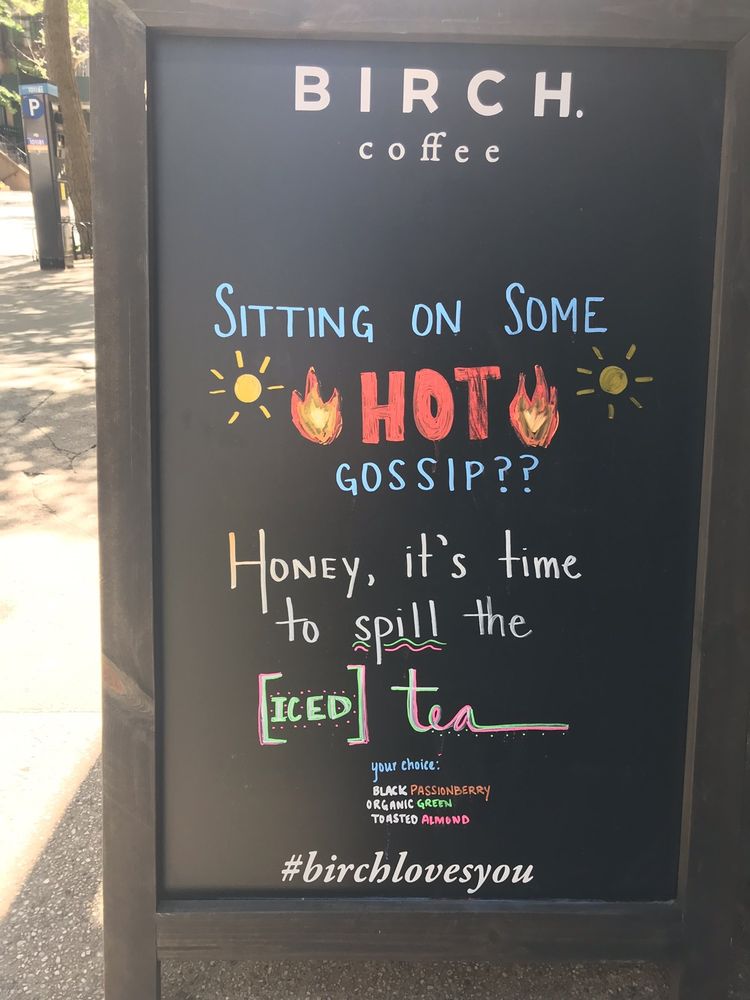 BIRCH.
coffee
SITTING ON SOME
HOT
GOSSIP??
HONEY, it's time
to spill the
[ICED] tea
your choice:
BLACK PASSIONBERRY
ORGANIC GREEN
TOASTED ALMOND
#birchlovesyou
P